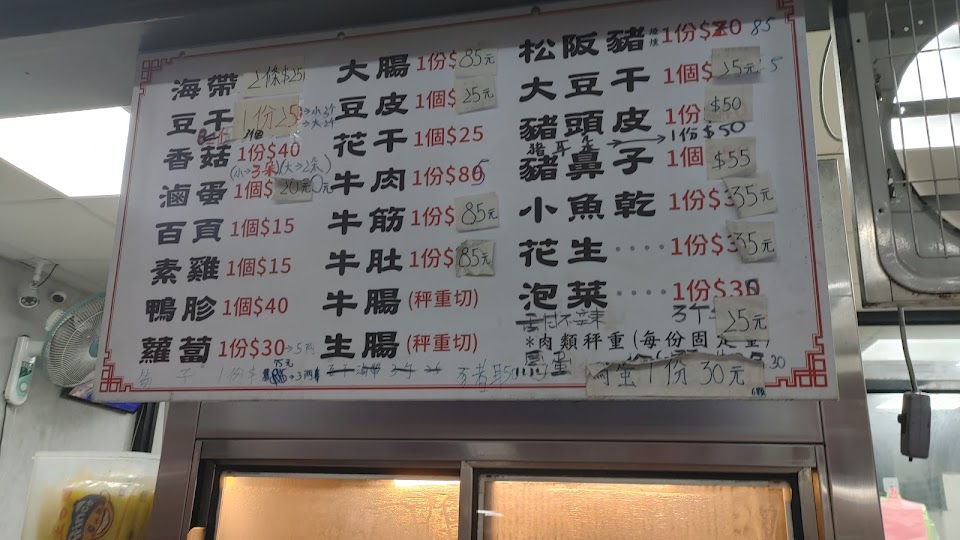 海帶 2條$25
豆干 1份25 →小3片
→大2片
香菇 1份$40
(小→3朵)(大→2朵)
滷蛋 1個$20元
百頁 1個$15
素雞 1個$15
鴨胗 1個$40
蘿蔔 1份$30
大腸 1份$85元
豆皮 1個$25元
花干 1個$25
牛肉 1份$85
牛筋 1份$85元
牛肚 1份$85元
牛腸 (秤重切)
生腸 (秤重切)
松阪豬 1份$70 85
大豆干 1個$35元
豬頭皮 1份$50
豬耳朵 → 1份$50
豬鼻子 1個$55
小魚乾 1份$35元
花生‥‥ 1份$35元
泡菜‥‥ 1份$30
25元
*肉類秤重(每份固定量)
1份30元